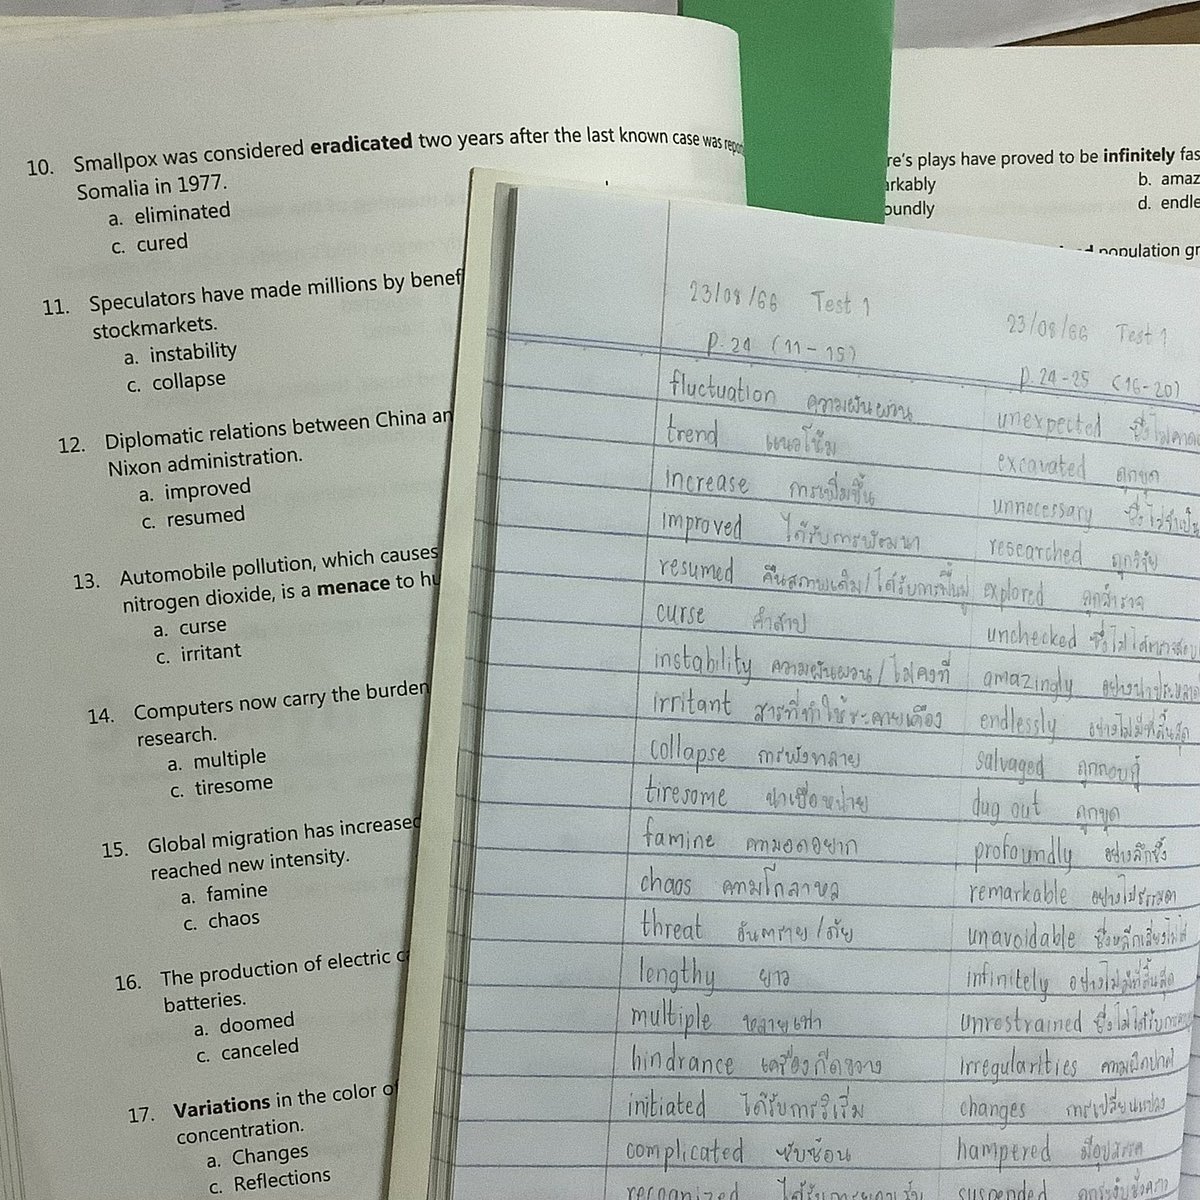 10. Smallpox was considered eradicated two years after the last known case was
Somalia in 1977.
a. eliminated
c. cured
11. Speculators have made millions by
stockmarkets.
a. instability
c. collapse
12. Diplomatic relations between China
Nixon administration.
a. improved
c. resumed
13. Automobile pollution, which causes
nitrogen dioxide, is a menace to
a. curse
c. irritant
14. Computers now carry the burden
research.
a. multiple
c. tiresome
15. Global migration has increased
reached new intensity.
a. famine
c. chaos
16. The production of electric
batteries.
a. doomed
c. canceled
17. Variations in the color
concentration.
a. Changes
c. Reflections
re's plays have proved to be infinitely
b.
d.
population
23/08/66 Test 1
P.24 (11-15)
fluctuation ความผันผวน
trend แนวโน้ม
increase การเพิ่มขึ้น
improved ได้รับการพัฒนา
resumed คืนสภาพเดิม/ได้รับการฟื้นฟู
curse คำสาป
instability ความผันผวน/ไม่คงที่
irritant สารที่ทำให้ระคายเคือง
collapse การพังทลาย
tiresome น่าเบื่อหน่าย
famine ความอดอยาก
chaos ความโกลาหล
threat อันตราย/ภัย
lengthy ยาว
multiple หลายเท่า
hindrance เครื่องกีดขวาง
initiated ได้รับการริเริ่ม
complicated ซับซ้อน
recognized
23/08/66 Test 1
P.24-25 (16-20)
unexpected
excavated ถูกขุด
unnecessary ซึ่งไม่จำเป็น
researched ถูกวิจัย
explored ถูกสำรวจ
unchecked
amazingly
endlessly อย่างไม่มีที่สิ้นสุด
salvaged ถูกกอบกู้
dug out ถูกขุด
profoundly อย่างลึกซึ้ง
remarkable อย่างไม่ธรรมดา
unavoidable ซึ่งหลีกเลี่ยงไม่ได้
infinitely อย่างไม่มีที่สิ้นสุด
unrestrained
irregularities ความผิดปกติ
changes การเปลี่ยนแปลง
hampered มีอุปสรรค
suspended